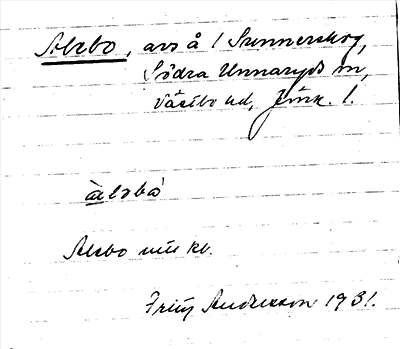 Alebo, avs å 1 Sunnerskog,
Södra Unnaryds sn,
Västbo hd, Jönk. l.
àlebò
Alebo
Fritz Andersson 1931.